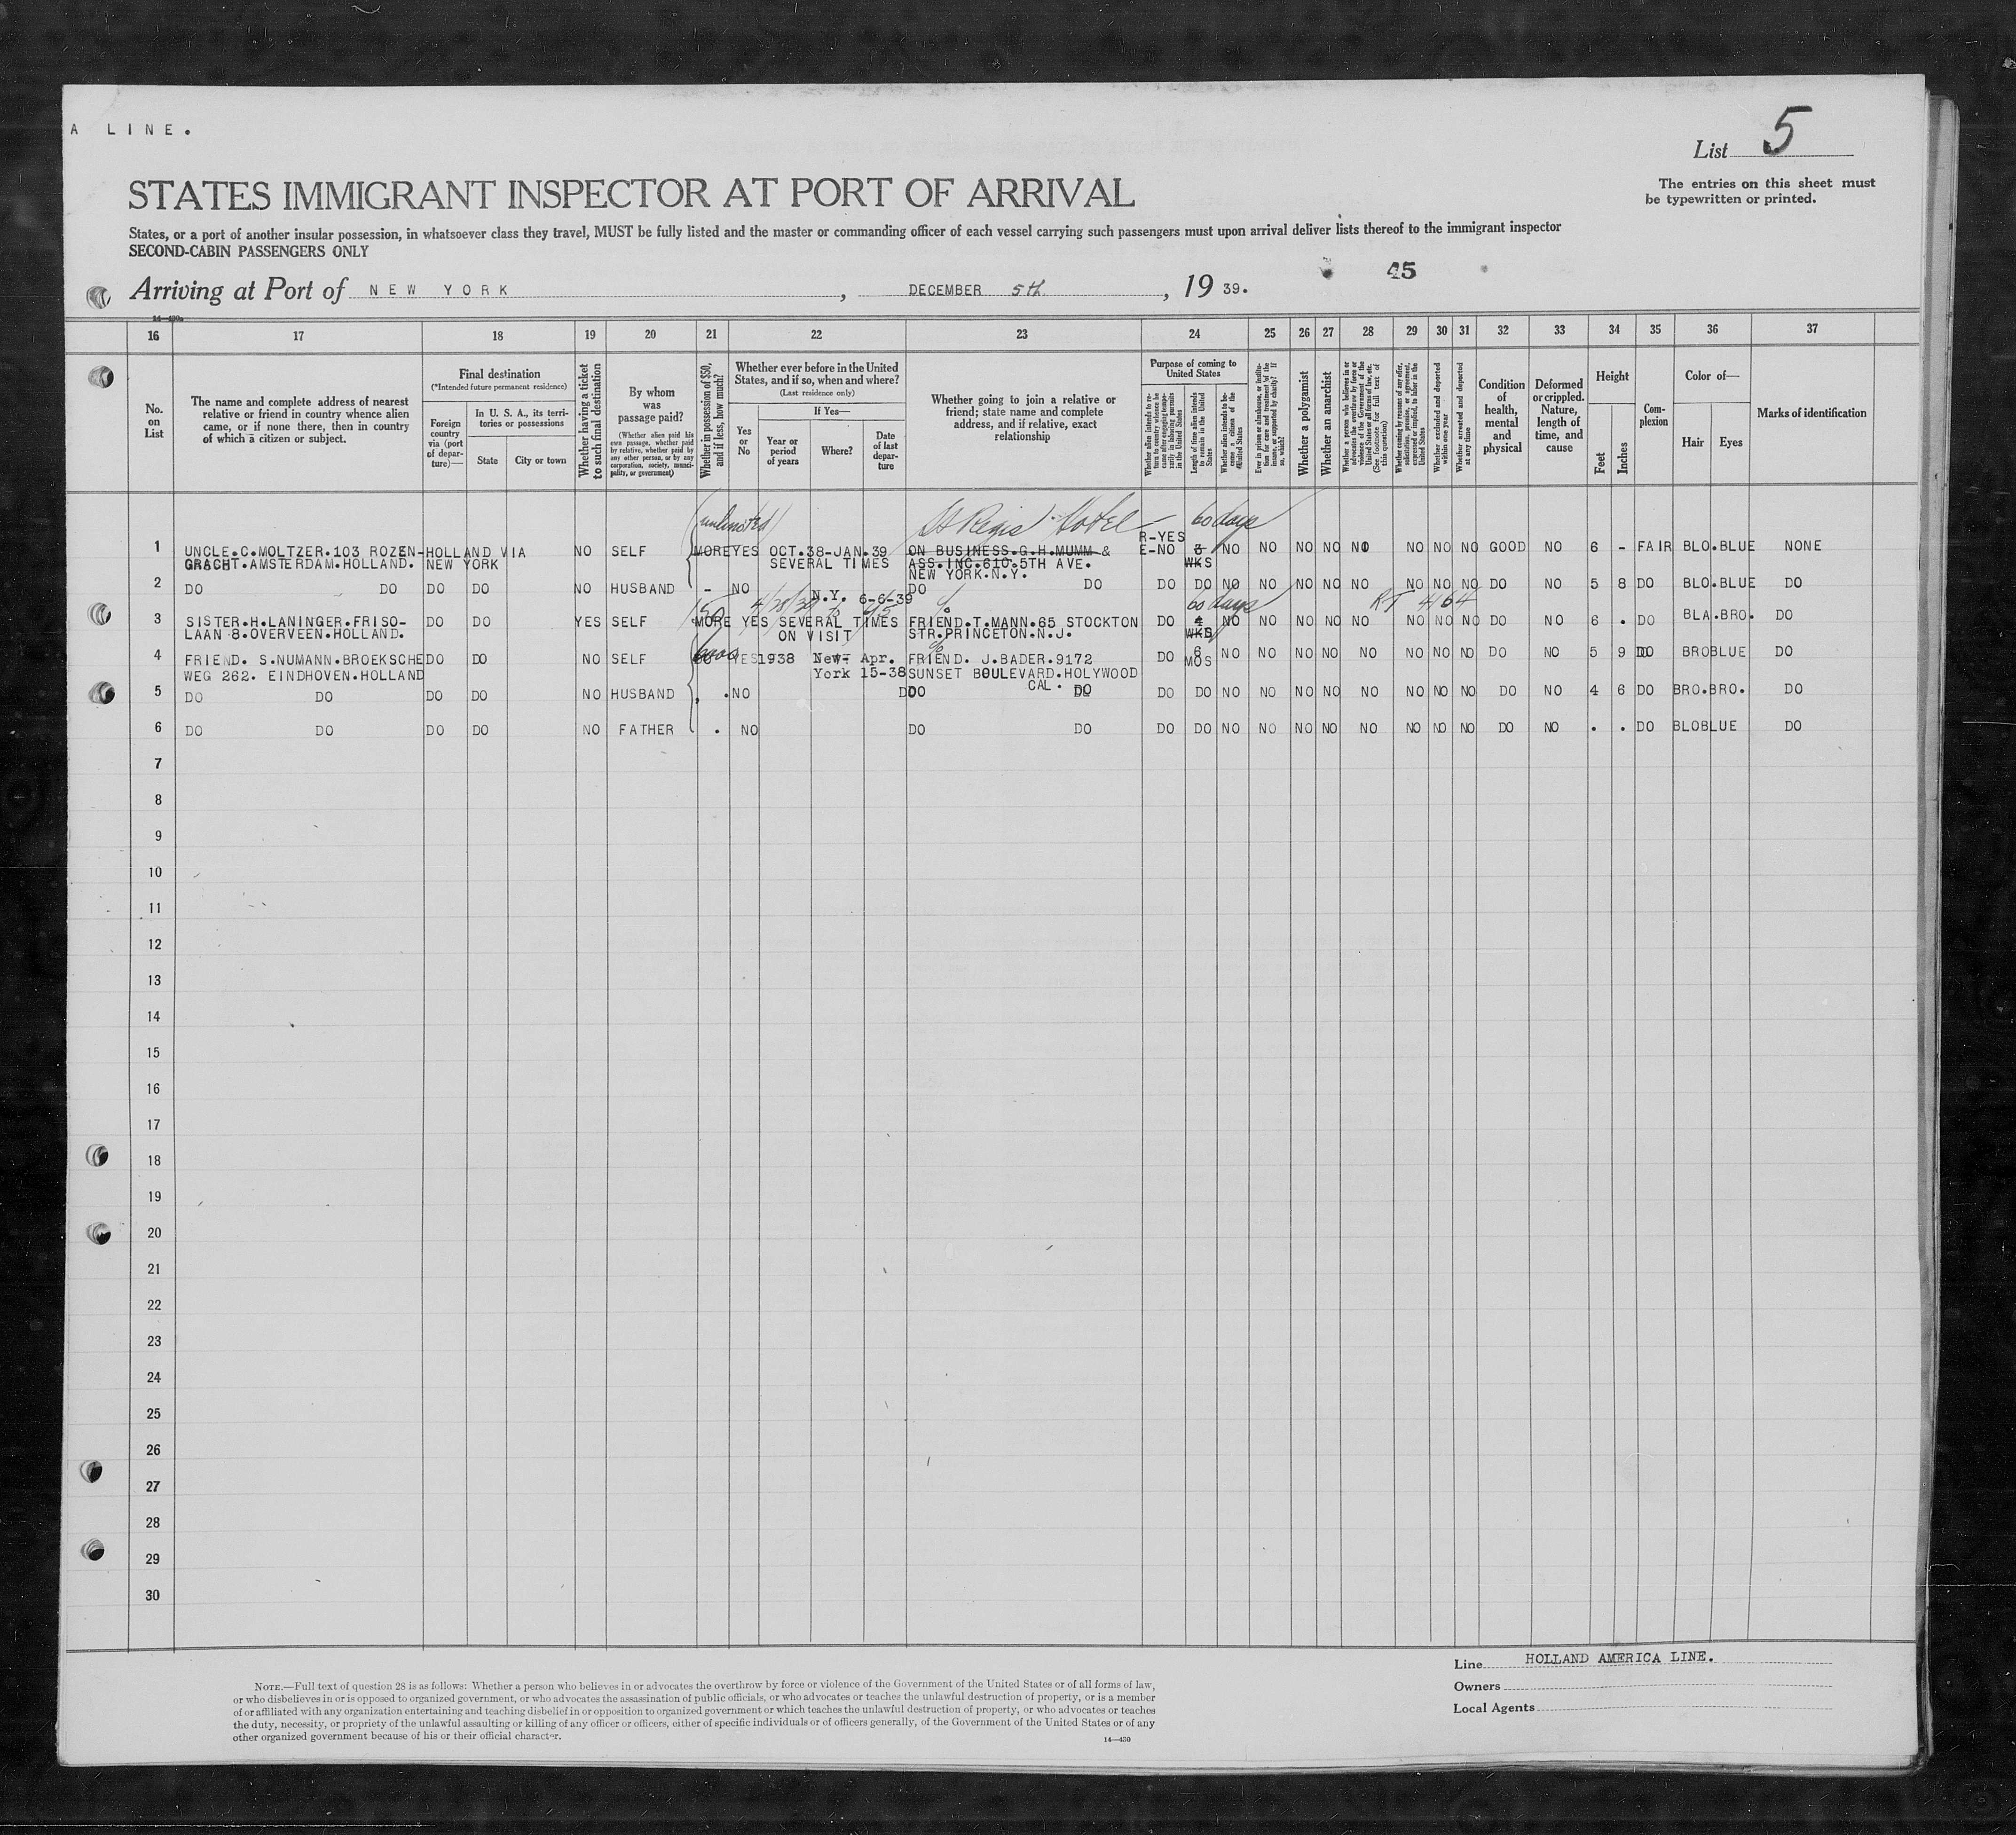 A LINE.
List 5
STATES IMMIGRANT INSPECTOR AT PORT OF ARRIVAL
The entries on this sheet must
be typewritten or printed.
States, or a port of another insular possession, in whatsoever class they travel, MUST be fully listed and the master or commanding officer of each vessel carrying such passengers must upon arrival deliver lists thereof to the immigrant inspector
SECOND-CABIN PASSENGERS ONLY
45
Arriving at Port of NEW YORK, DECEMBER 5th, 1939.
14—430
16 17 18 19 20 21 22 23 24 25 26 27 28 29 30 31 32 33 34 35 36 37
No. on List
The name and complete address of nearest
relative or friend in country whence alien
came, or if none there, then in country
of which a citizen or subject.
Final destination
(*Intended future permanent residence)
Foreign country via (port of departure)—
In U. S. A., its territories or possessions
State
City or town
Whether having a ticket to such final destination
By whom was passage paid?
(Whether alien paid his own passage, whether paid by relative, whether paid by any other person, or by any corporation, society, municipality, or government)
Whether in possession of $50, and if less, how much?
Whether ever before in the United
States, and if so, when and where?
(Last residence only)
Yes or No
If Yes—
Year or period of years
Where?
Date of last departure
Whether going to join a relative or
friend; state name and complete
address, and if relative, exact
relationship
Purpose of coming to United States
Whether alien intends to return to country whence he came after engaging temporarily in laboring pursuits in the United States
Length of time alien intends to remain in the United States
Whether alien intends to become a citizen of the United States
Ever in prison or almshouse, or institution for care and treatment of the insane, or supported by charity? If so, which?
Whether a polygamist
Whether an anarchist
Whether a person who believes in or advocates the overthrow by force or violence of the Government of the United States or all forms of law, etc. (See footnote for full text of this question)
Whether coming by reason of any offer, solicitation, promise, or agreement, expressed or implied, to labor in the United States
Whether excluded and deported within one year
Whether arrested and deported at any time
Condition of health, mental and physical
Deformed or crippled. Nature, length of time, and cause
Height
Feet
Inches
Complexion
Color of—
Hair
Eyes
Marks of identification
(unlimited) St Regis Hotel 60 days
R-YES
1 UNCLE.C.MOLTZER.103 ROZEN-HOLLAND VIA NO SELF MORE YES OCT.38-JAN.39 ON BUSINESS.G.H.MUMM & E-NO 3 NO NO NO NO NO NO NO NO GOOD NO 6 - FAIR BLO.BLUE NONE
GRACHT.AMSTERDAM.HOLLAND. NEW YORK SEVERAL TIMES ASS.INC.610.5TH AVE. WKS
NEW YORK.N.Y.
2 DO DO DO DO NO HUSBAND - NO DO DO DO DO NO NO NO NO NO NO NO NO DO NO 5 8 DO BLO.BLUE DO
N.Y. 6-6-39
150 60 days RT 4164
3 SISTER.H.LANINGER.FRISO- DO DO YES SELF MORE YES SEVERAL TIMES FRIEND.T.MANN.65 STOCKTON DO 4 NO NO NO NO NO NO NO NO DO NO 6 . DO BLA.BRO. DO
LAAN 8.OVERVEEN.HOLLAND. ON VISIT STR.PRINCETON.N.J. WKS
4 FRIEND. S.NUMANN.BROEKSCHE DO DO NO SELF YES 1938 New- Apr. FRIEND. J.BADER.9172 DO 6 NO NO NO NO NO NO NO NO DO NO 5 9 DO BRO BLUE DO
WEG 262. EINDHOVEN.HOLLAND York 15-38 SUNSET BOULEVARD.HOLYWOOD MOS
CAL.
5 DO DO DO DO NO HUSBAND . NO DO DO DO DO NO NO NO NO NO NO NO NO DO NO 4 6 DO BRO.BRO. DO
6 DO DO DO DO NO FATHER . NO DO DO DO DO NO NO NO NO NO NO NO NO DO NO . . DO BLO BLUE DO
7
8
9
10
11
12
13
14
15
16
17
18
19
20
21
22
23
24
25
26
27
28
29
30
NOTE.—Full text of question 28 is as follows: Whether a person who believes in or advocates the overthrow by force or violence of the Government of the United States or of all forms of law,
or who disbelieves in or is opposed to organized government, or who advocates the assassination of public officials, or who advocates or teaches the unlawful destruction of property, or is a member
of or affiliated with any organization entertaining and teaching disbelief in or opposition to organized government or which teaches the unlawful destruction of property, or who advocates or teaches
the duty, necessity, or propriety of the unlawful assaulting or killing of any officer or officers, either of specific individuals or of officers generally, of the Government of the United States or of any
other organized government because of his or their official character.
14—430
Line HOLLAND AMERICA LINE.
Owners
Local Agents